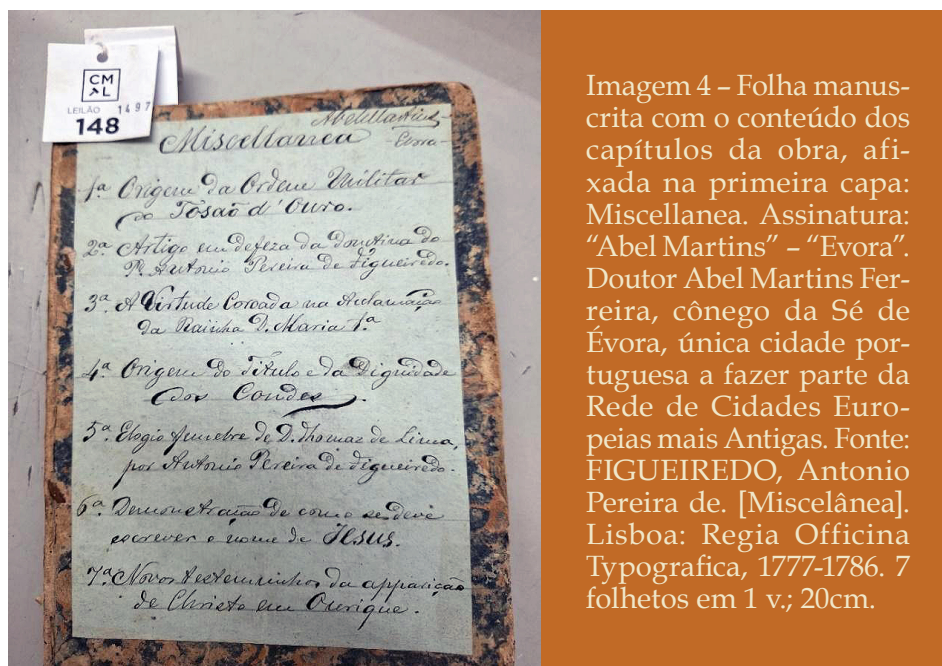 CM
AL
LEILÃO 1497
148
Abel Martins
Miscellanea Evora
1ª Origem da Ordem Militar
do Tosaõ d'Ouro.
2ª Artigo em defeza da doutina do
Pe. Antonio Pereira de Figueiredo.
3ª A Virtude Coroada na Aclamação
da Rainha D. Maria 1ª
4ª Origem do Titulo e da Dignidade
dos Condes.
5ª Elogio funebre de D. Thomaz de Lima,
por Antonio Pereira de Figueiredo.
6ª Demonstração de como se deve
escrever o nome de JEsus.
7ª Novos testemunhos da apparição
de Christo em Ourique.
Imagem 4 – Folha manus-
crita com o conteúdo dos
capítulos da obra, afi-
xada na primeira capa:
Miscellanea. Assinatura:
“Abel Martins” – “Evora”.
Doutor Abel Martins Fer-
reira, cônego da Sé de
Évora, única cidade por-
tuguesa a fazer parte da
Rede de Cidades Euro-
peias mais Antigas. Fonte:
FIGUEIREDO, Antonio
Pereira de. [Miscelânea].
Lisboa: Regia Officina
Typografica, 1777-1786. 7
folhetos em 1 v.; 20cm.